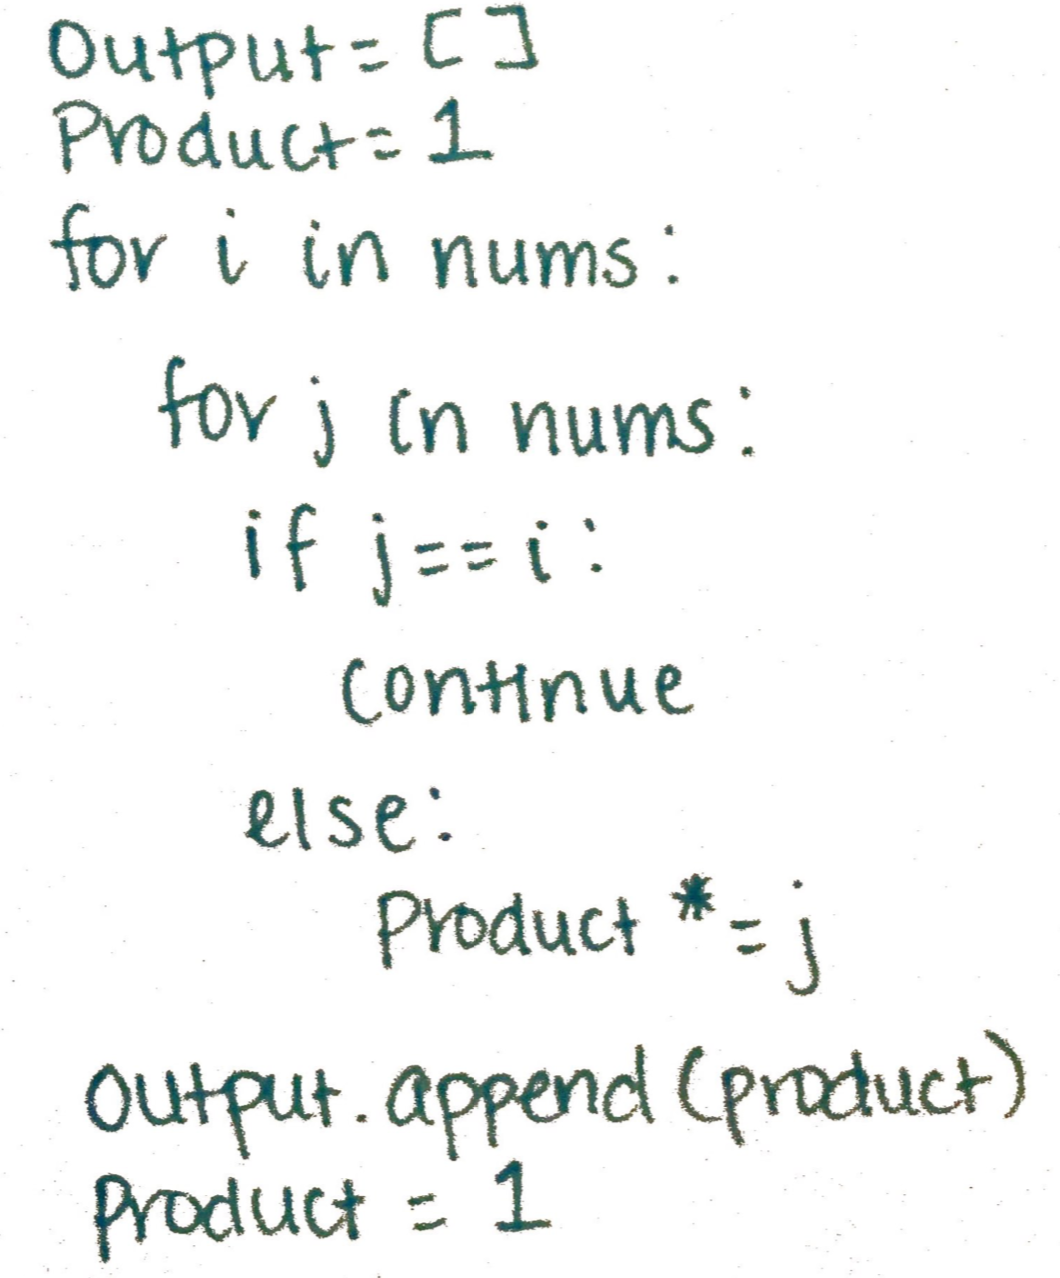 Output = []
Product = 1
for i in nums:
for j in nums:
if j == i:
continue
else:
Product *= j
Output.append(product)
Product = 1